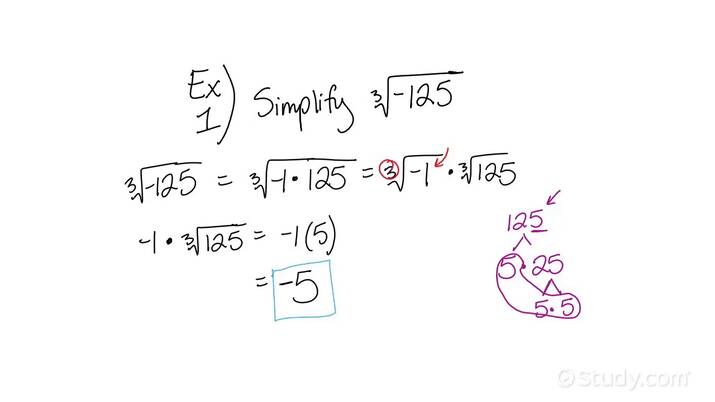 Ex 1) Simplify ∛-125
∛-125 = ∛-1·125 = ∛-1 · ∛125
-1·∛125 = -1(5)
= -5
125
5·25
5·5
©Study.com